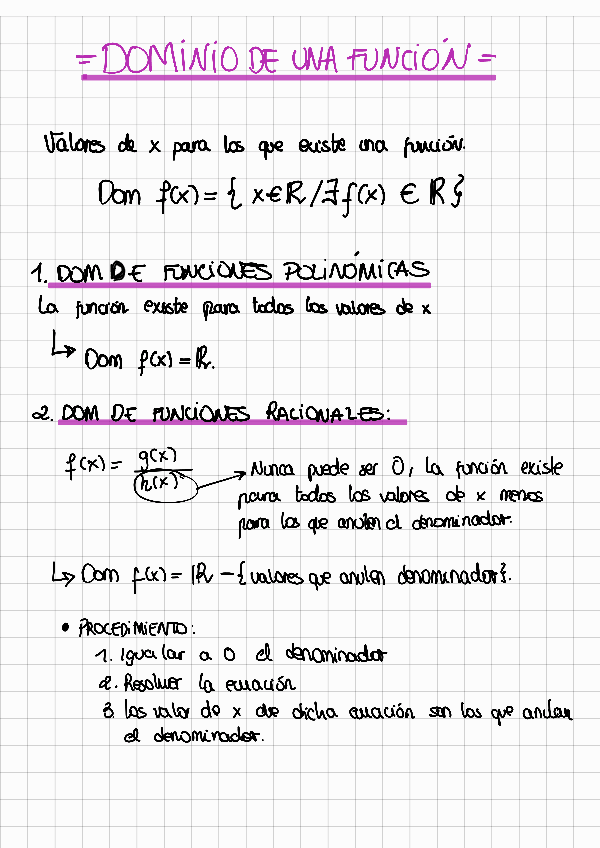 = DOMINIO DE UNA FUNCIÓN =
Valores de x para los que existe una función.
Dom f(x) = { x∈R / ∃ f(x) ∈ R }
1. DOM DE FUNCIONES POLINÓMICAS
La función existe para todos los valores de x
↳ Dom f(x) = R.
2. DOM DE FUNCIONES RACIONALES:
f(x) = g(x) / h(x) → Nunca puede ser 0, la función existe
para todos los valores de x menos
para los que anulen el denominador.
↳ Dom f(x) = R - { valores que anulen denominador }.
• PROCEDIMIENTO:
1. Igualar a 0 el denominador
2. Resolver la ecuación
3. Los valor de x de dicha ecuación son los que anulan
el denominador.